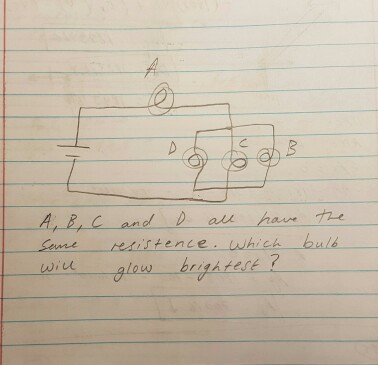 A
D C B
A, B, C and D all have the
same resistence. Which bulb
will glow brightest?